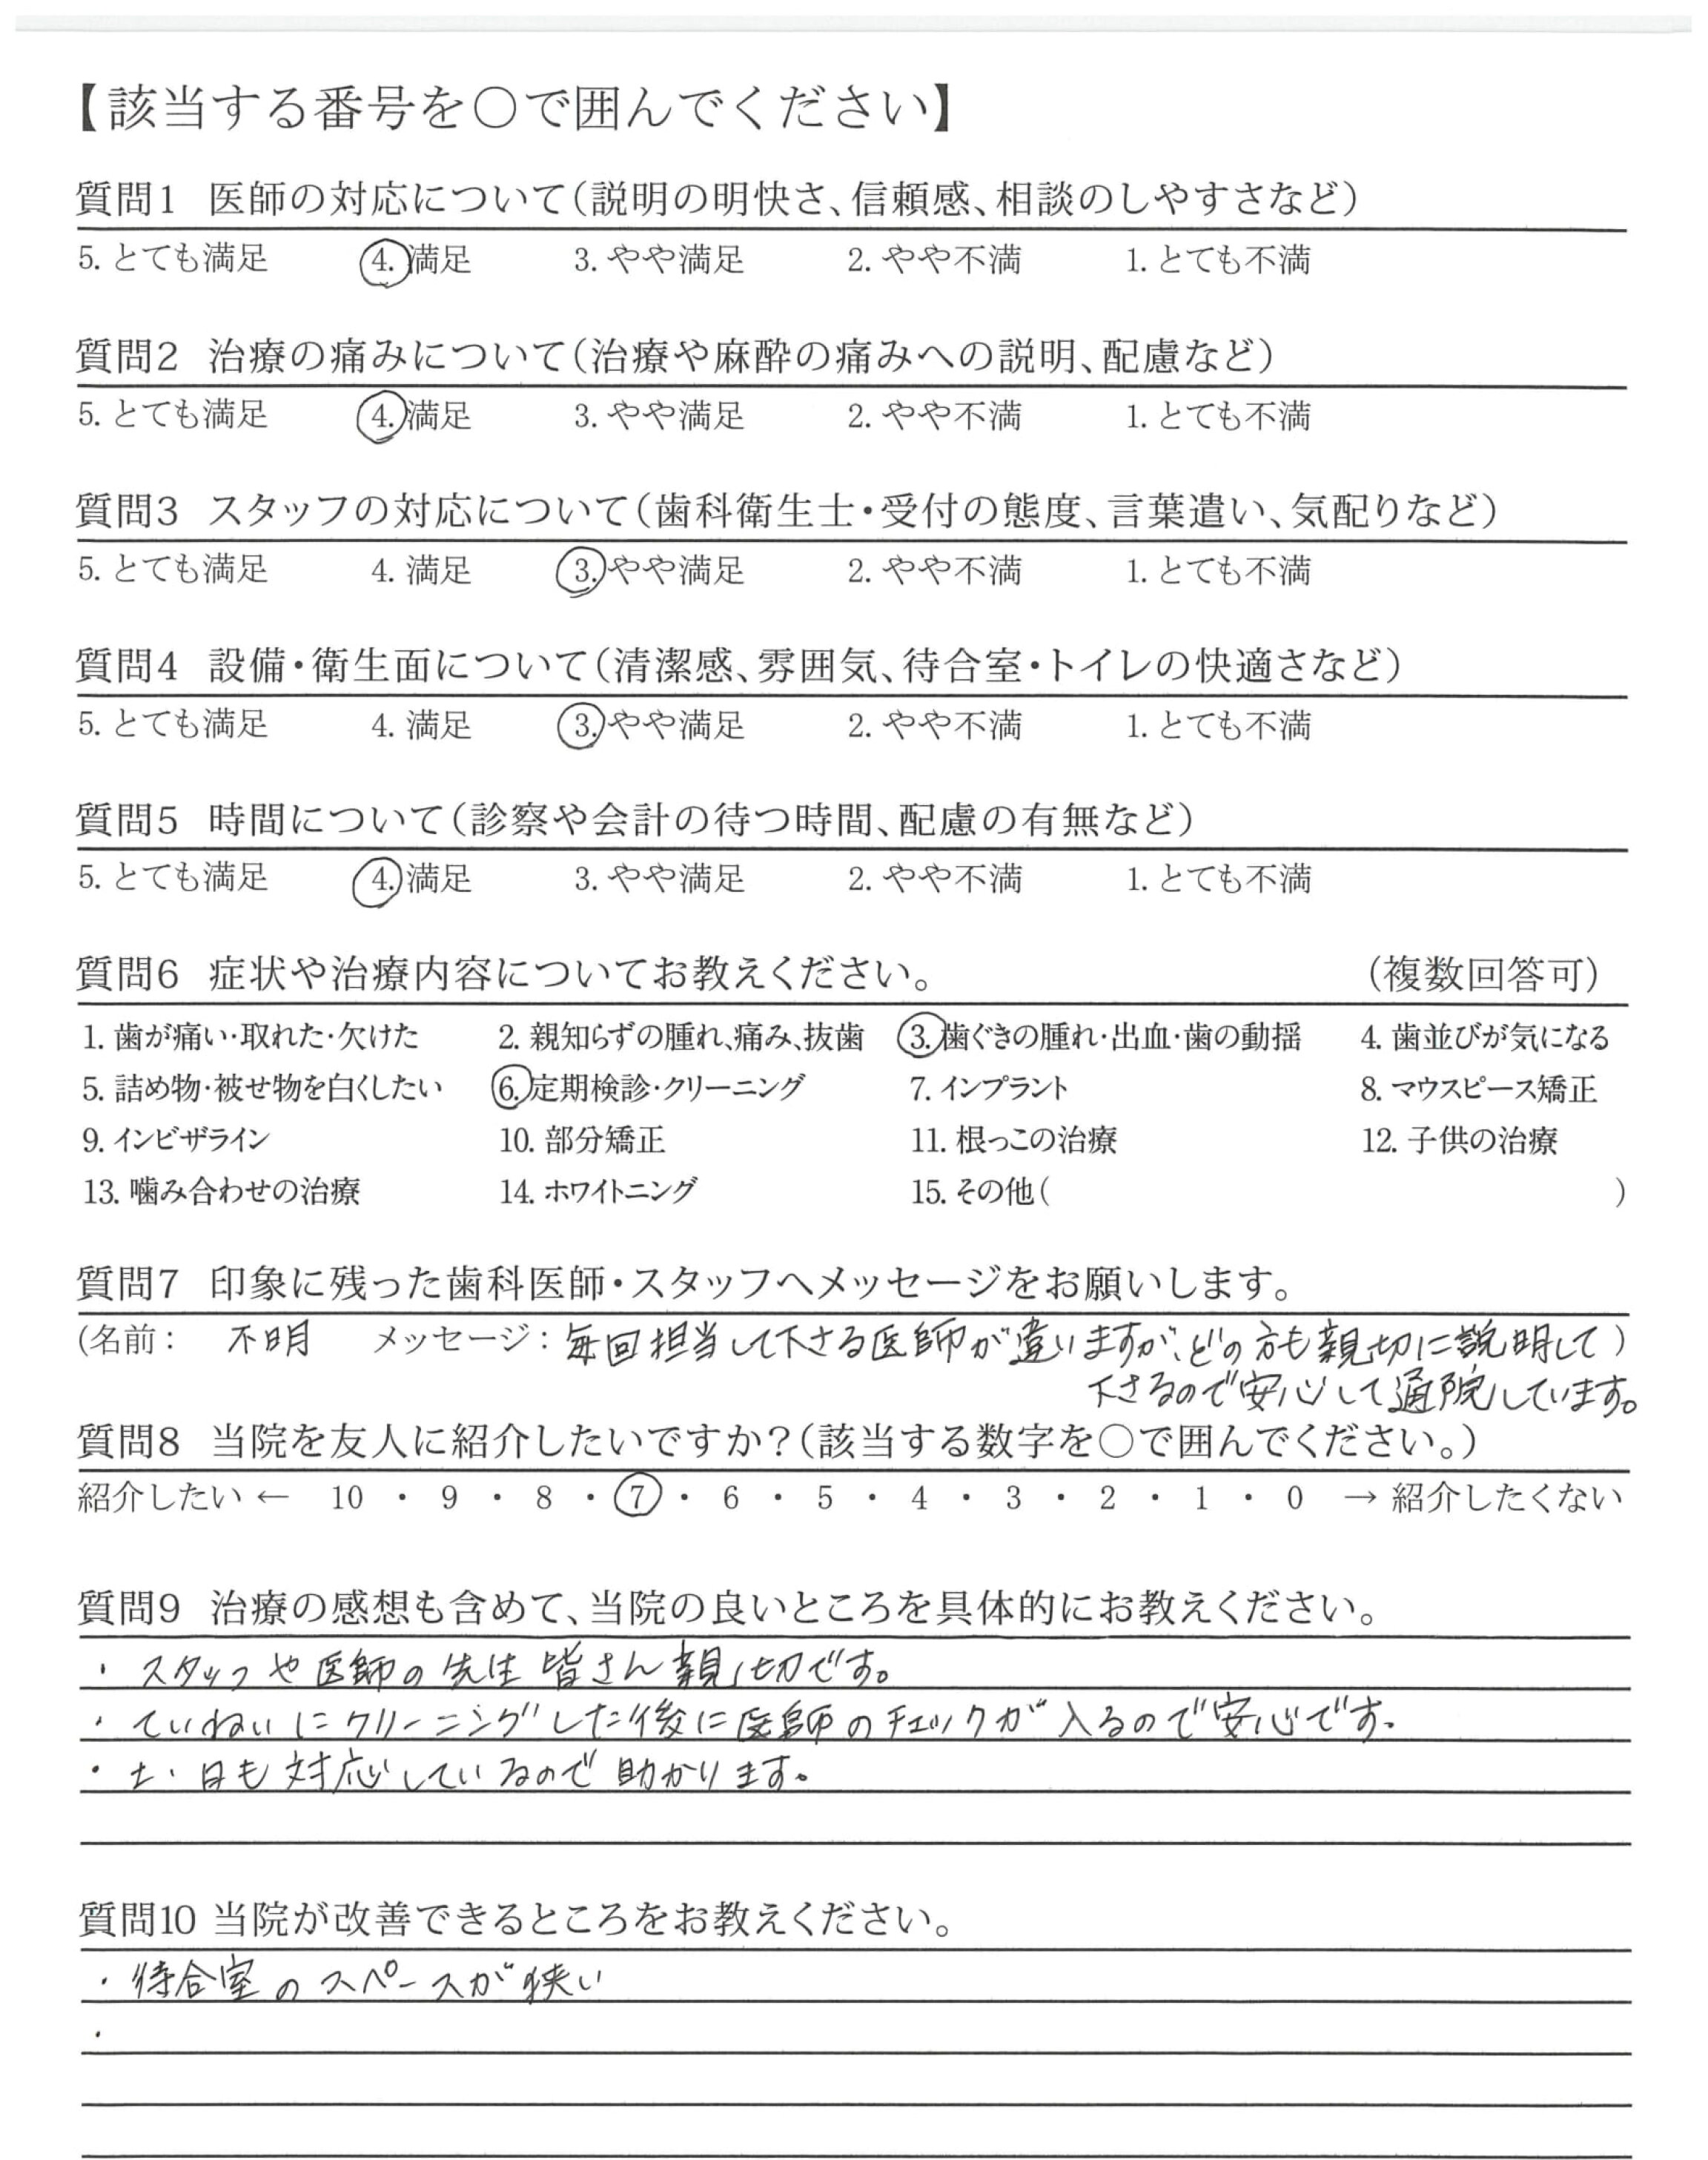 【該当する番号を○で囲んでください】
質問1 医師の対応について(説明の明快さ、信頼感、相談のしやすさなど)
5. とても満足 4. 満足 3. やや満足 2. やや不満 1. とても不満
質問2 治療の痛みについて(治療や麻酔の痛みへの説明、配慮など)
5. とても満足 4. 満足 3. やや満足 2. やや不満 1. とても不満
質問3 スタッフの対応について(歯科衛生士・受付の態度、言葉遣い、気配りなど)
5. とても満足 4. 満足 3. やや満足 2. やや不満 1. とても不満
質問4 設備・衛生面について(清潔感、雰囲気、待合室・トイレの快適さなど)
5. とても満足 4. 満足 3. やや満足 2. やや不満 1. とても不満
質問5 時間について(診察や会計の待つ時間、配慮の有無など)
5. とても満足 4. 満足 3. やや満足 2. やや不満 1. とても不満
質問6 症状や治療内容についてお教えください。 (複数回答可)
1. 歯が痛い・取れた・欠けた 2. 親知らずの腫れ、痛み、抜歯 3. 歯ぐきの腫れ・出血・歯の動揺 4. 歯並びが気になる
5. 詰め物・被せ物を白くしたい 6. 定期検診・クリーニング 7. インプラント 8. マウスピース矯正
9. インビザライン 10. 部分矯正 11. 根っこの治療 12. 子供の治療
13. 噛み合わせの治療 14. ホワイトニング 15. その他( )
質問7 印象に残った歯科医師・スタッフへメッセージをお願いします。
(名前： 不明 メッセージ：毎回担当して下さる医師が違いますが、どの方も親切に説明して)
下さるので安心して通院しています。
質問8 当院を友人に紹介したいですか？(該当する数字を○で囲んでください。)
紹介したい ← 10 ・ 9 ・ 8 ・ 7 ・ 6 ・ 5 ・ 4 ・ 3 ・ 2 ・ 1 ・ 0 → 紹介したくない
質問9 治療の感想も含めて、当院の良いところを具体的にお教えください。
・スタッフや医師の先生皆さん親切です。
・ていねいにクリーニングした後に医師のチェックが入るので安心です。
・土・日も対応しているので助かります。
質問10 当院が改善できるところをお教えください。
・待合室のスペースが狭い
・